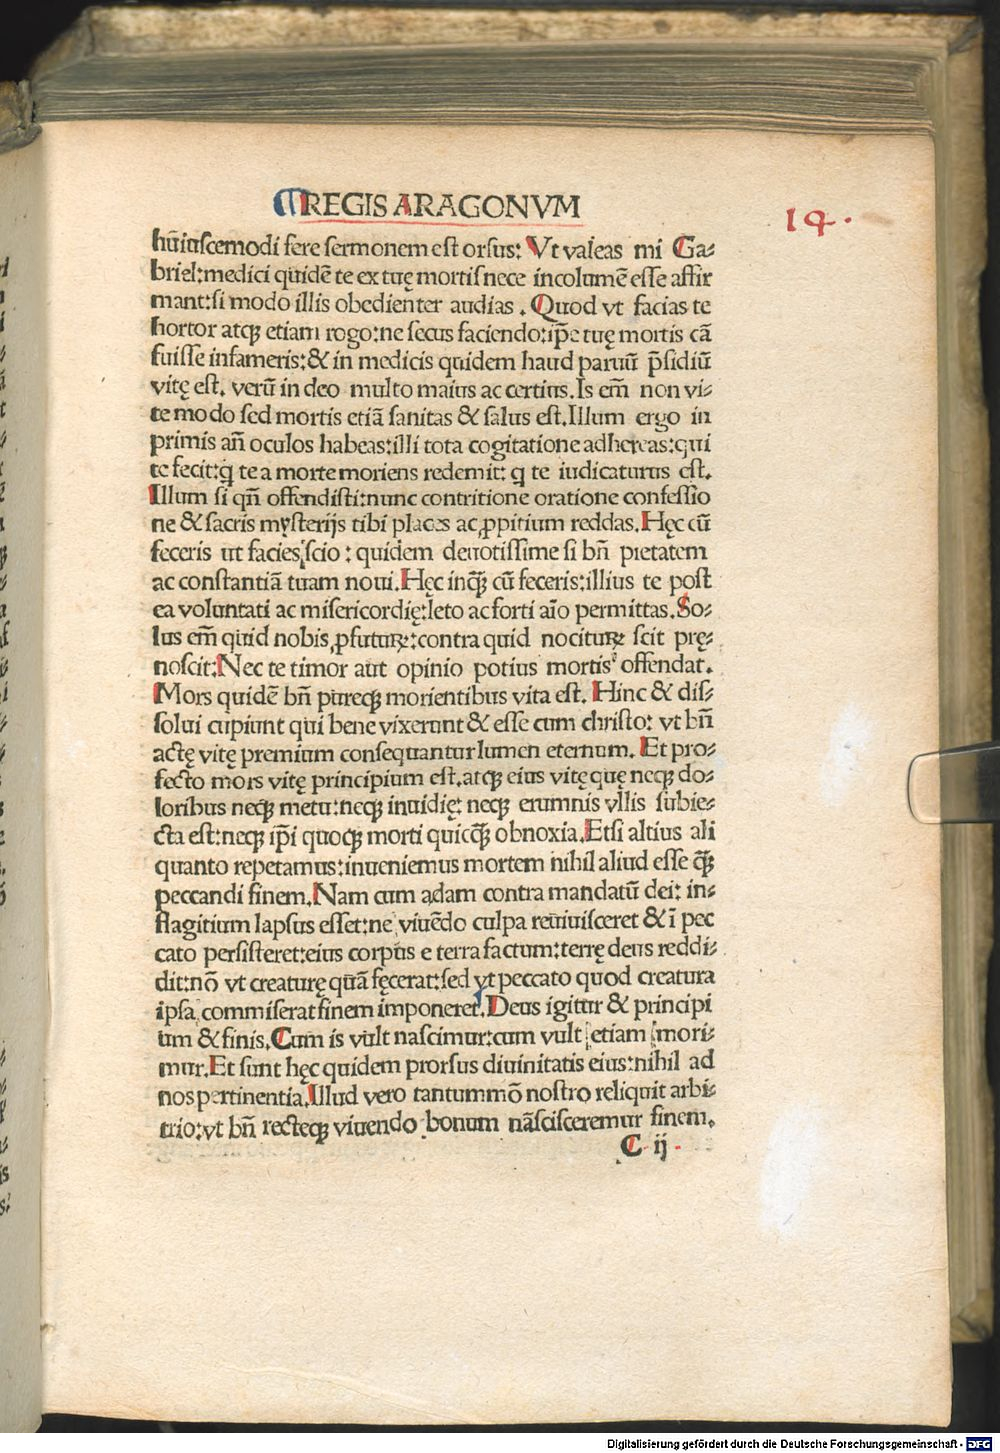 REGIS ARAGONVM
14.
hūiuscemodi fere sermonem est orsus: Vt valeas mi Ga⸗
briel:medici quidē te ex tuę mortis nece incolumē esse affir
mant:si modo illis obedienter audias. Quod vt facias te
hortor atqꝫ etiam rogo:ne secus faciendo:ip̄e tuę mortis cā
fuisse infameris:& in medicis quidem haud paruū p̄sidiū
vitę est. verū in deo multo maius ac certius.Is em̄ non vi⸗
te modo sed mortis etiā sanitas & salus est.Illum ergo in
primis an̄ oculos habeas:illi tota cogitatione adhereas:qui
te fecit:q̄ te a morte moriens redemit: q te iudicaturus est.
Illum si qn̄ offendisti:nunc contritione oratione confessio
ne & sacris mysterijs tibi places ac ꝓpitium reddas.Hęc cū
feceris ut facies scio: quidem deuotissime si bn̄ pietatem
ac constantiā tuam noui.Hęc inqꝫ̄ cū feceris:illius te post
ea voluntati ac misericordię:leto ac forti aīo permittas.So⸗
lus em̄ quid nobis ꝓfuturꝝ:contra quid nociturꝝ scit prę⸗
noscit:Nec te timor aut opinio potius mortis offendat.
Mors quidē bn̄ pureqꝫ morientibus vita est. Hinc & dis⸗
solui cupiunt qui bene vixerunt & esse cum christo: vt bn̄
actę vitę premium consequantur lumen eternum. Et pro⸗
fecto mors vitę principium est.atqꝫ eius vitę quę neqꝫ do⸗
loribus neqꝫ metu:neqꝫ inuidię: neqꝫ erumnis vllis subie⸗
cta est:neqꝫ ip̄i quoqꝫ morti quicqꝫ̄ obnoxia.Etsi altius ali
quanto repetamus:inueniemus mortem nihil aliud esse qꝫ̄
peccandi finem.Nam cum adam contra mandatū dei: in⸗
flagitium lapsus esset:ne viuēdo culpa reuiuisceret & ī pec
cato persisteret:eius corpus e terra factum:terrę deus reddi⸗
dit:nō vt creaturę quā fęcerat:sed vt peccato quod creatura
ipsa commiserat finem imponeret.Deus igitur & principi
um & finis.Cum is vult nascimur:cum vult etiam mori⸗
mur.Et sunt hęc quidem prorsus diuinitatis eius:nihil ad
nos pertinentia.Illud vero tantummō nostro reliquit arbi⸗
trio:vt bn̄ recteqꝫ viuendo bonum nāscisceremur finem.
C ij
Digitalisierung gefördert durch die Deutsche Forschungsgemeinschaft - DFG